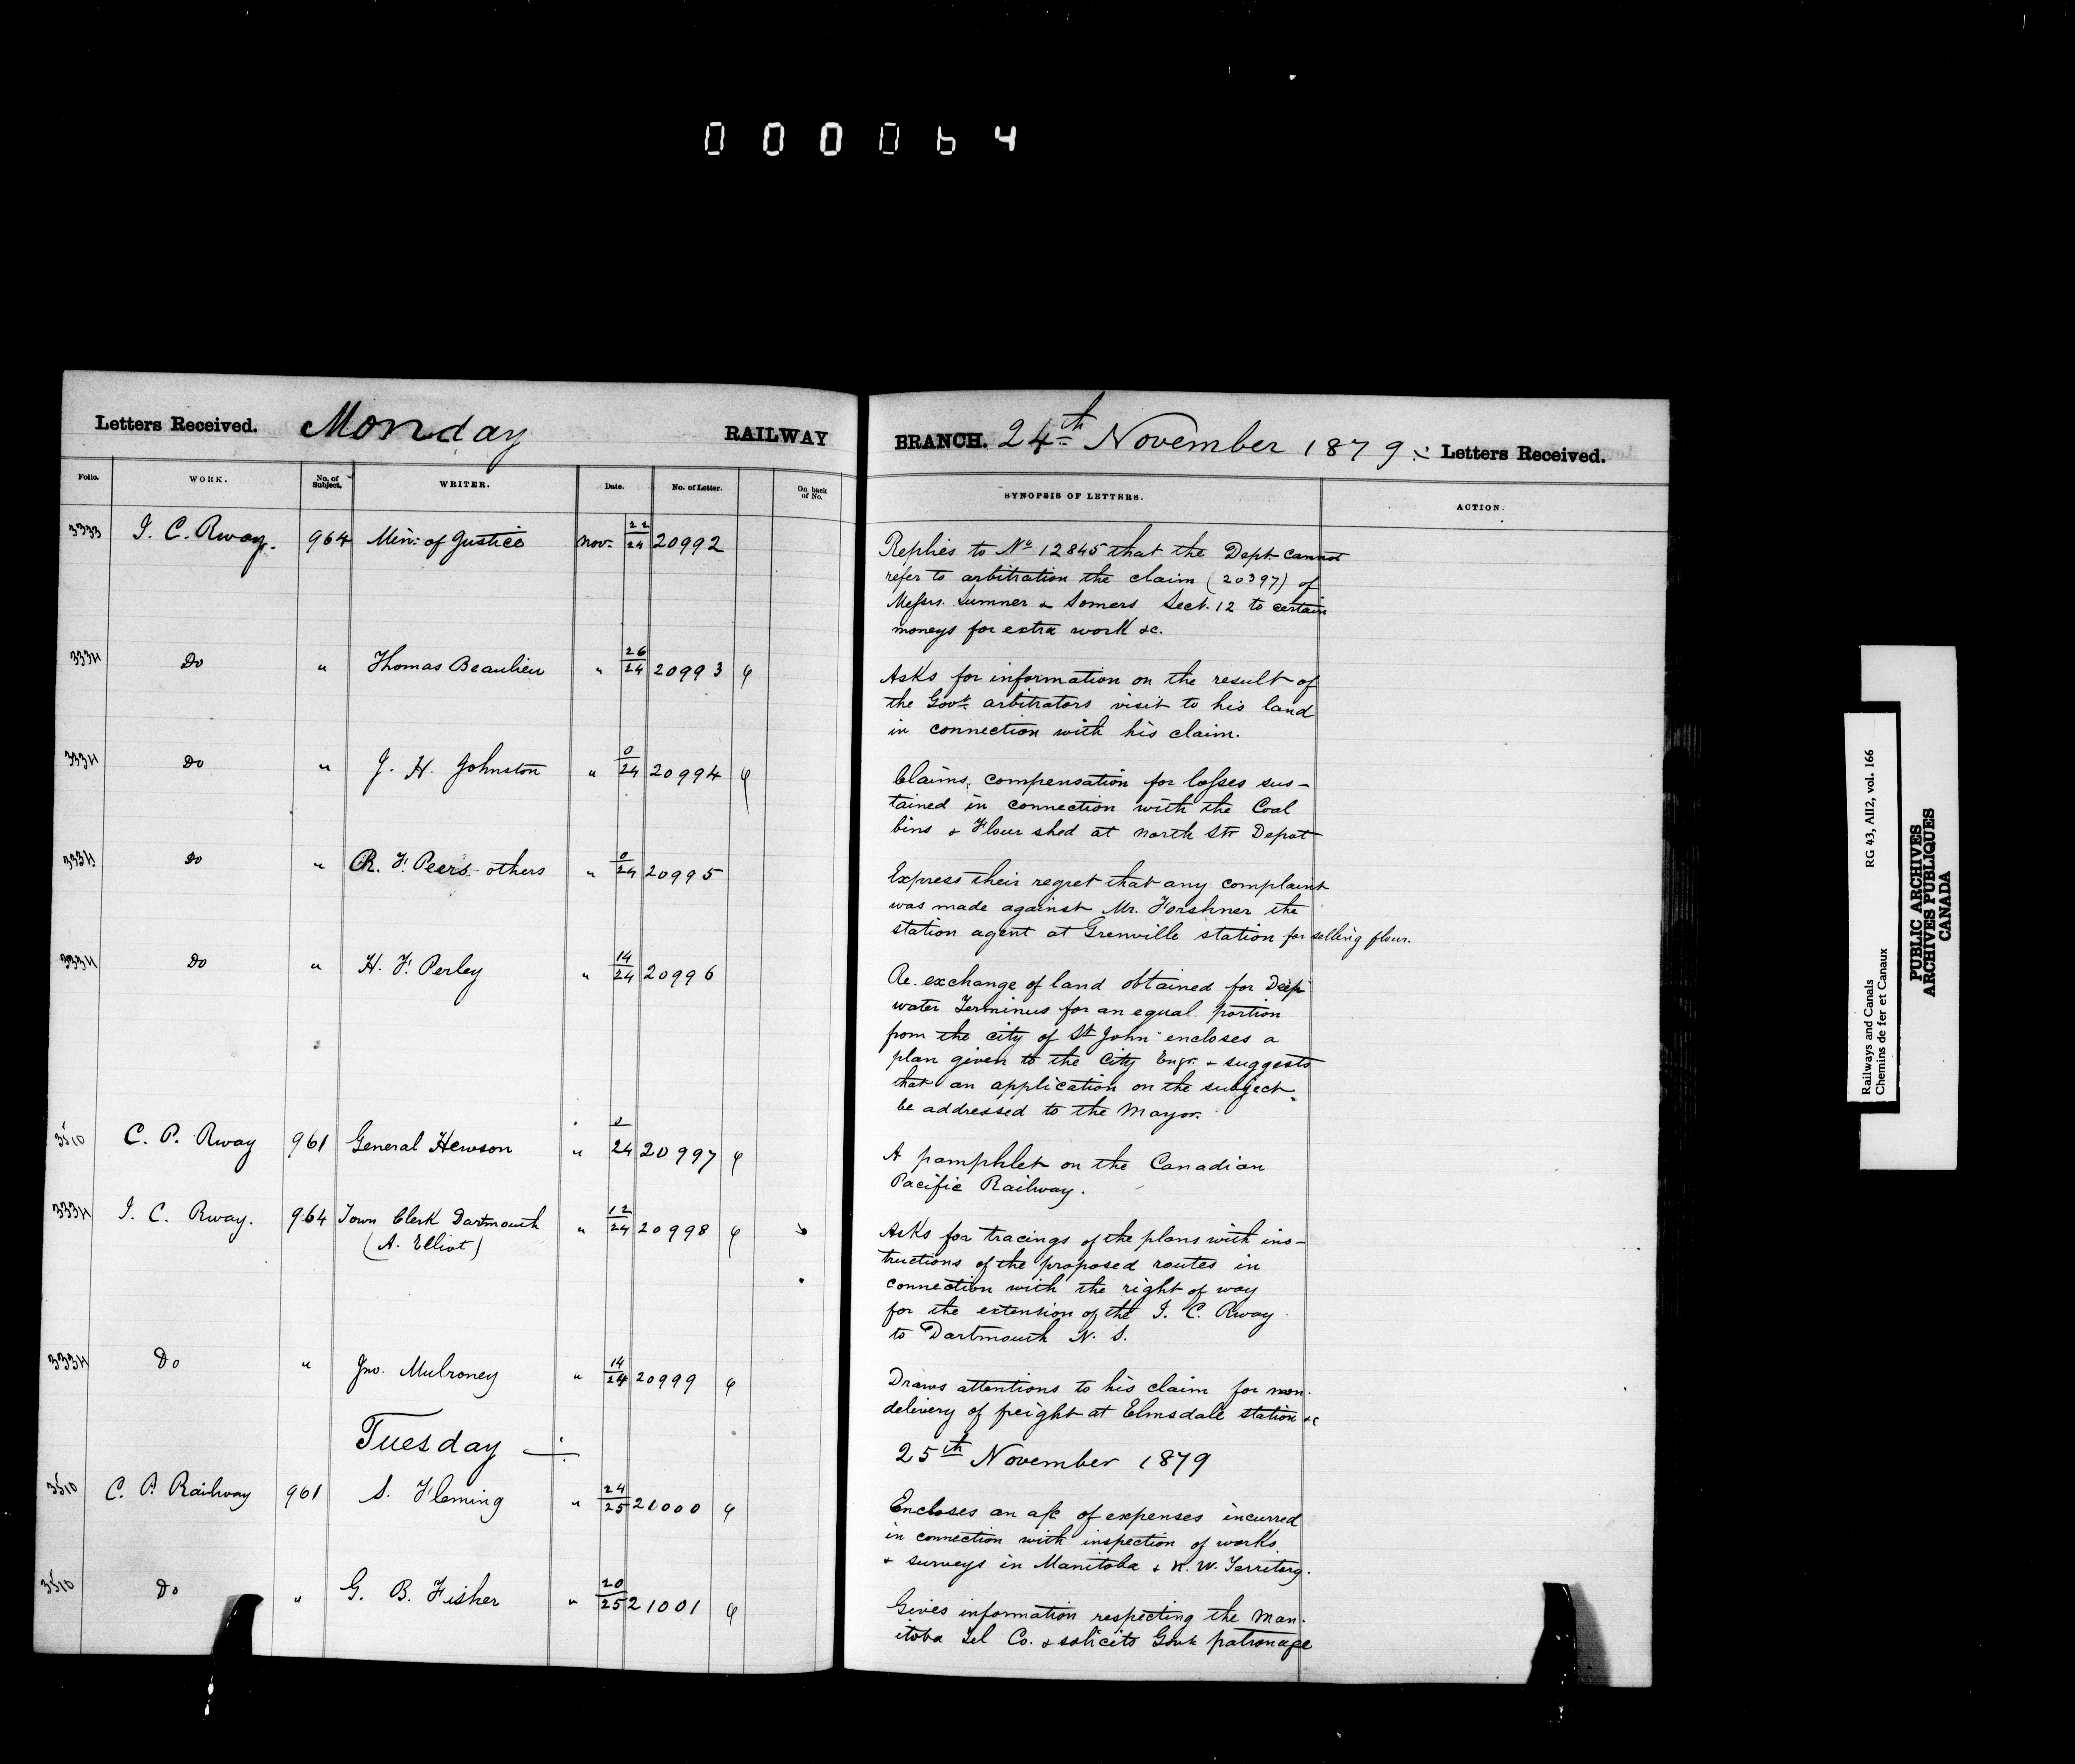 000064
Letters Received. Monday RAILWAY
Folio. WORK. No. of Subject. WRITER. Date. No. of Letter. On back of No.
3333 I. C. Rway. 964 Min: of Justice Nov. 22/24 20992
3334 Do " Thomas Beaulieu " 26/24 20993
3334 Do " J. H. Johnston " 0/24 20994
3334 Do " R. F. Peers others " 0/24 20995
3334 Do " H. F. Perley " 14/24 20996
3510 C. P. Rway 961 General Hewson " 24 20997
3334 I. C. Rway. 964 Town Clerk Dartmouth " 12/24 20998
(A. Elliot)
3334 Do " Jno. Mulroney " 14/24 20999
Tuesday
3510 C. P. Railway 961 S. Fleming " 24/25 21000
3510 Do " G. B. Fisher " 20/25 21001
BRANCH. 24th November 1879 Letters Received.
SYNOPSIS OF LETTERS. ACTION.
Replies to No 12845 that the Dept. cannot
refer to arbitration the claim (20397) of
Messrs. Sumner & Somers Sect. 12 to certain
moneys for extra work &c.
Asks for information on the result of
the Govt. arbitrators visit to his land
in connection with his claim.
Claims compensation for losses sus-
tained in connection with the Coal
bins & Flour shed at North Str Depot
Express their regret that any complaint
was made against Mr. Forshner the
station agent at Grenville station for selling flour.
Re. exchange of land obtained for Deep
water Terminus for an equal portion
from the city of St John encloses a
plan given to the City Engr. & suggests
that an application on the subject
be addressed to the Mayor.
A pamphlet on the Canadian
Pacific Railway.
Asks for tracings of the plans with ins-
tructions of the proposed routes in
connection with the right of way
for the extension of the I. C. Rway
to Dartmouth N. S.
Draws attentions to his claim for non-
delivery of freight at Elmsdale station &c
25th November 1879
Encloses an a/c of expenses incurred
in connection with inspection of works
& surveys in Manitoba & N. W. Territory.
Gives information respecting the Man-
itoba Tel Co. & solicits Govt patronage
Railways and Canals RG 43, AII2, vol. 166
Chemins de fer et Canaux
PUBLIC ARCHIVES
ARCHIVES PUBLIQUES
CANADA